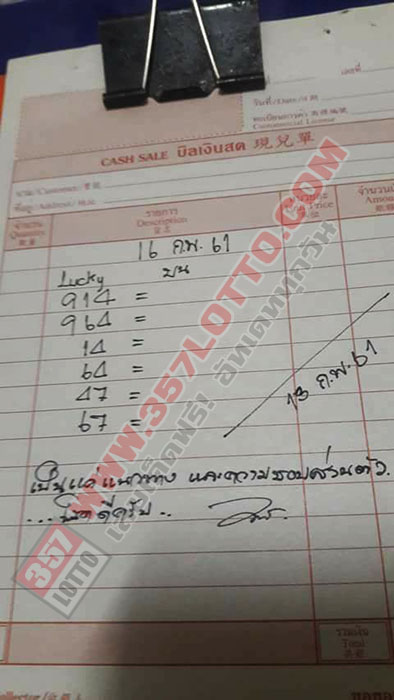 เลขที่
วันที่/Date/日期
ทะเบียนการค้า
Commercial License
CASH SALE บิลเงินสด 現兌單
นาม/Customer/
ที่อยู่/Address/
จำนวน
Quantity
รายการ
Description
Unit Price
จำนวนเงิน
Amount
16 ก.พ. 61
Lucky บน
914 =
964 =
14 =
64 =
47 =
67 =
13 ก.พ. 61
เป็นแค่แนวทาง และความชอบส่วนตัว.
...โชคดีครับ..
WWW.357LOTTO.COM
เลขเด็ดฟรี! อัพเดททุกวัน
357
LOTTO
รวมเงิน
Total